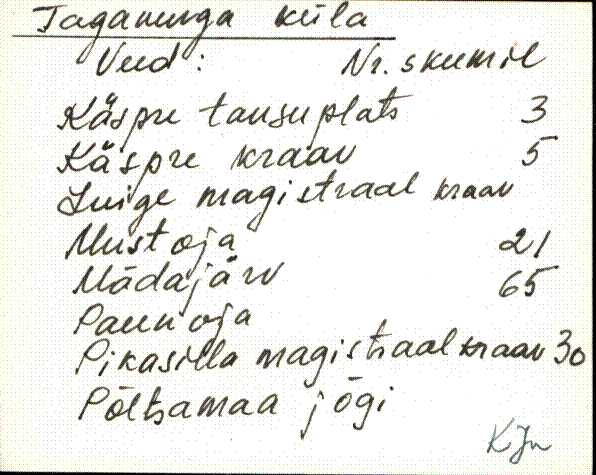 Taganurga küla
Veed : Nr. skeemil
Käspre tantsuplats 3
Käspre kraav 5
Luige magistraal kraav
Mustoja 21
Mädajärv 65
Paunoja
Pikasilla magistraalkraav 30
Põltsamaa jõgi